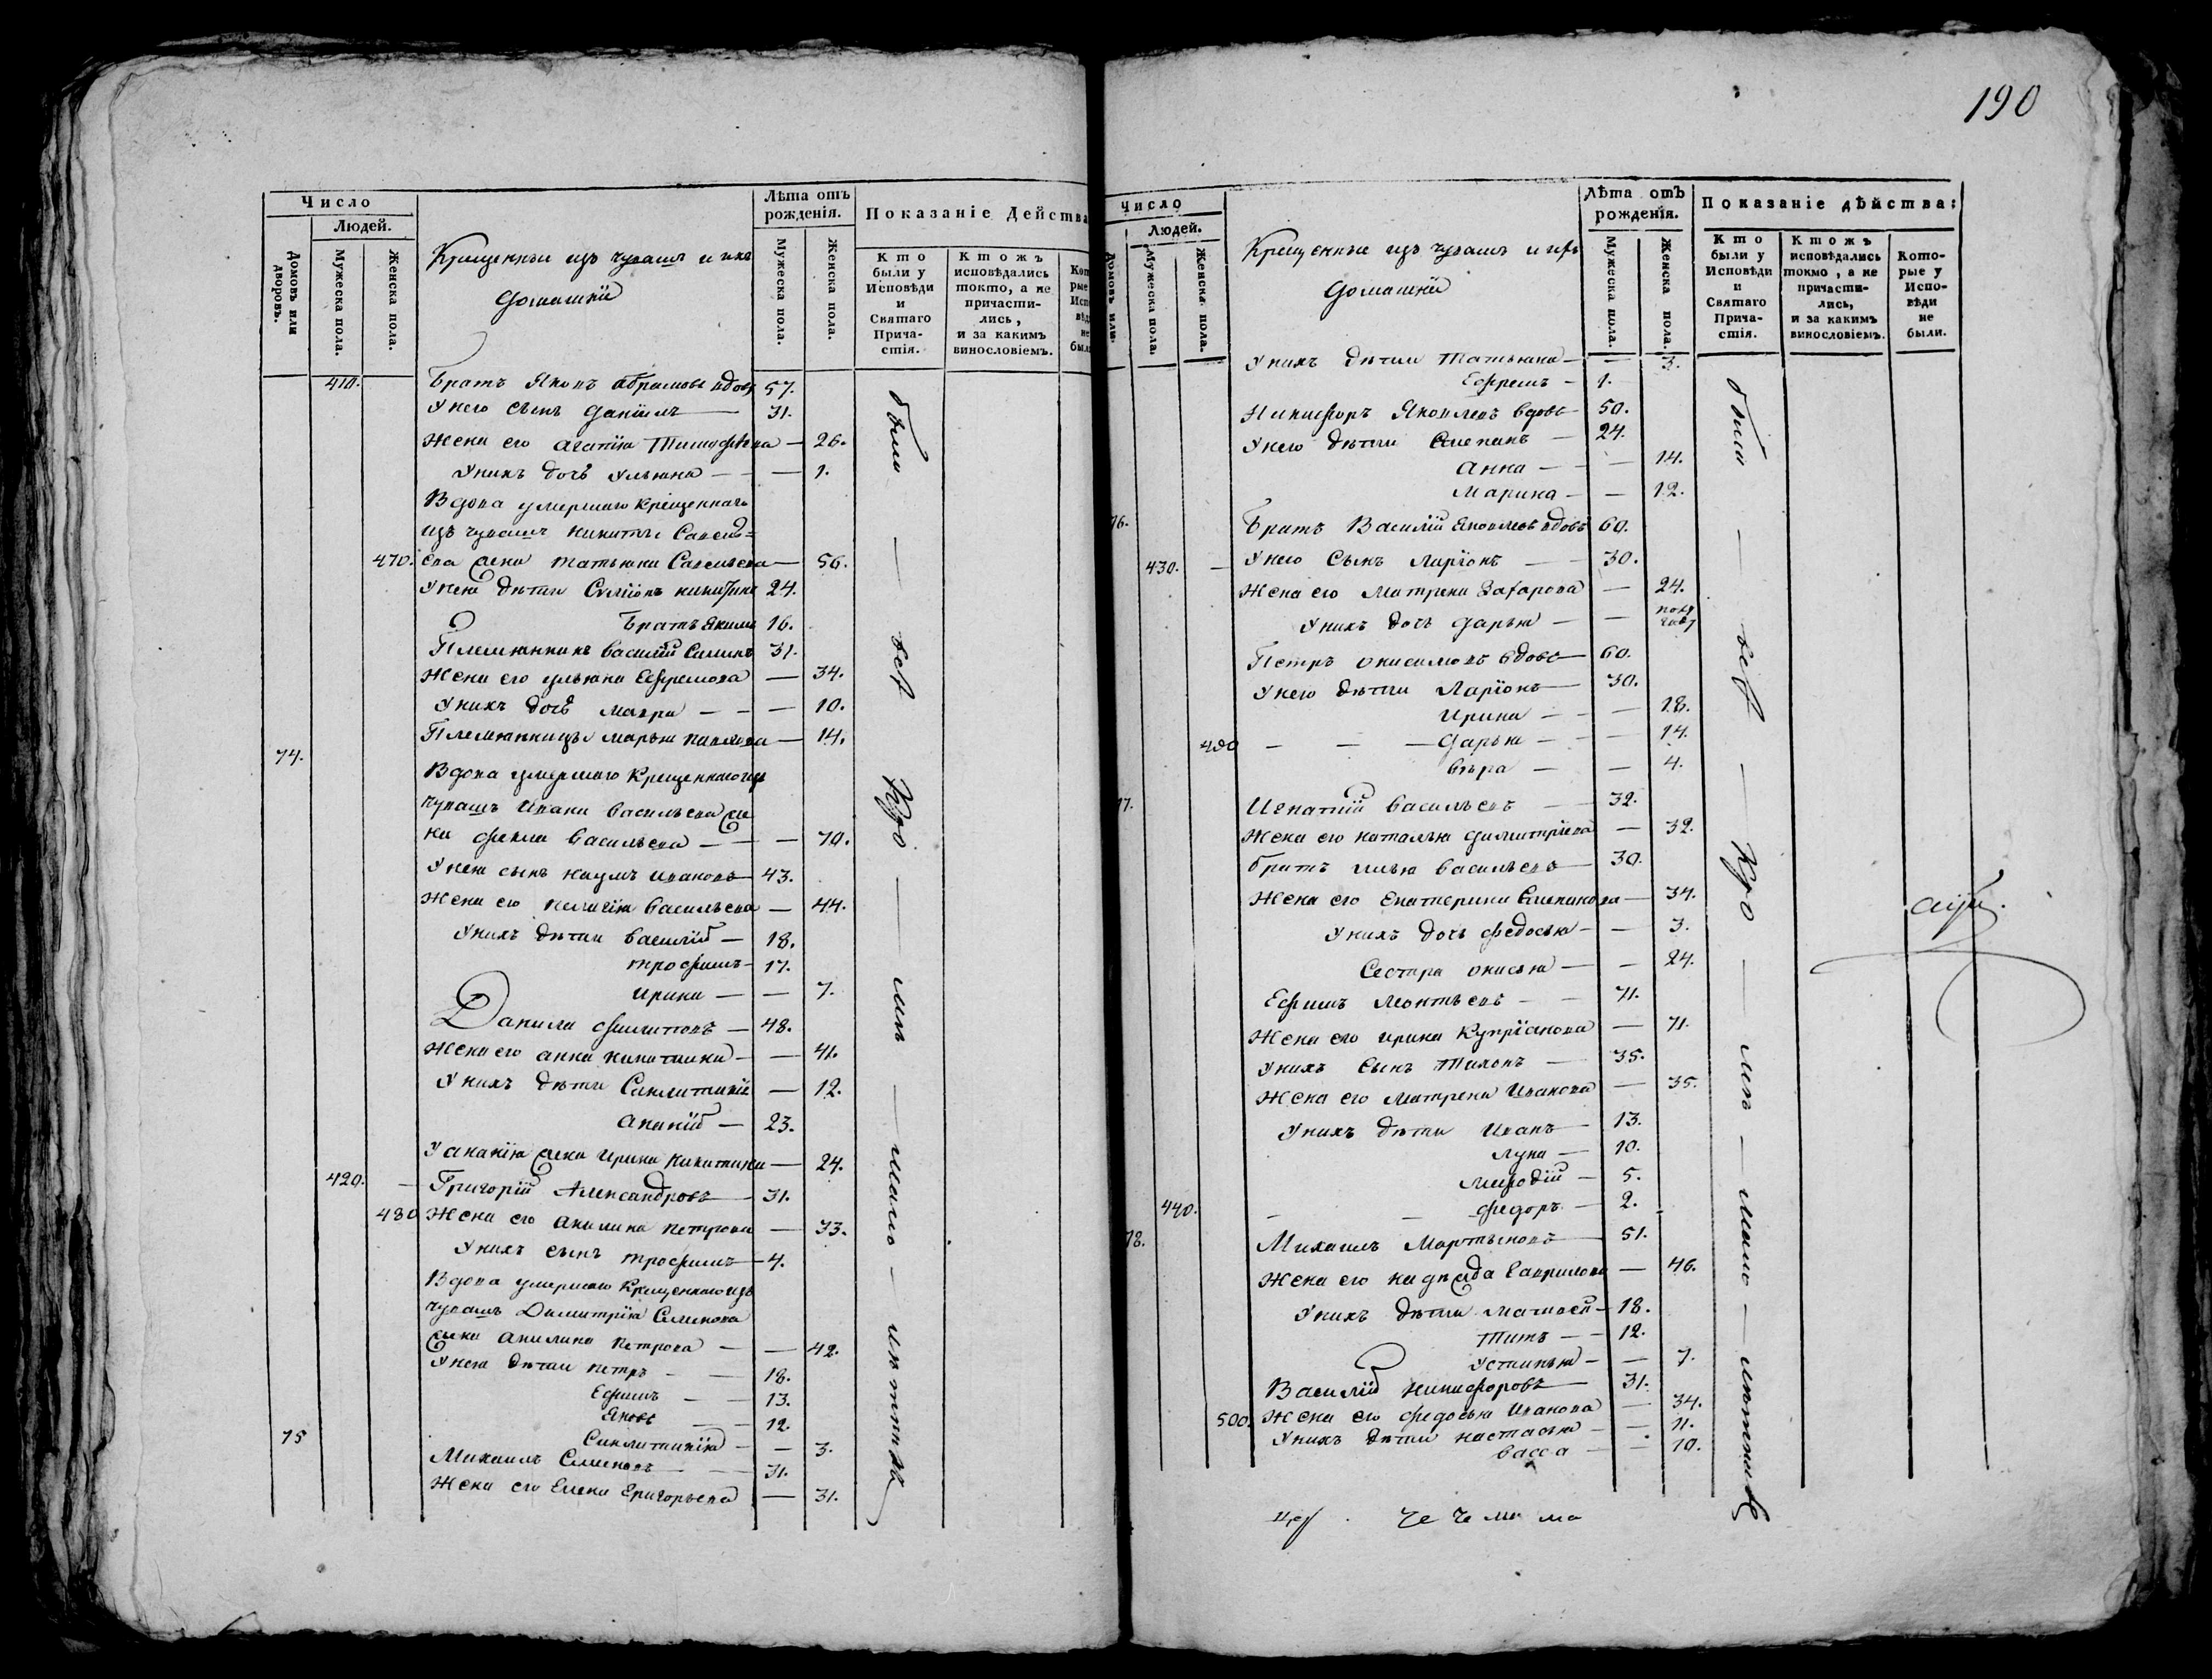 Число
Людей.
Домовъ или дворовъ.
Мужеска пола.
Женска пола.
Крещенныи изъ чувашъ и ихъ
домашнїи
Лѣта отъ рожденїя.
Мужеска пола.
Женска пола.
Показанїе Действа
Кто были у Исповѣди и Святаго Прича-стїя.
Ктожъ исповѣдались токмо, а не причасти-лись, и за какимъ винословїемъ.
410. Братъ Яковъ Абрамовъ вдовъ 57.
У него сынъ Данїилъ — 31.
Жена его Агапїя Тимофѣева — 26.
У нихъ дочь Ульяна — — 1.
Вдова умершаго крещеннаго
изъ чувашъ Никиты Савель=
470. ева жена Татьяна Савельева — 56.
У нея дѣти Симїонъ Никитинъ 24.
Братъ Якимъ 16.
Племянникъ Василїй Симинъ 31.
Жена его Ульяна Ефремова — 34.
У нихъ дочь Мавра — — 10.
Племянница Марья Павлова — 14.
74.
Вдова умершаго крещеннаго изъ
чувашъ Ивана Васильева же
на Фекла Васильева — — 70.
У нея сынъ Наумъ Ивановъ 43.
Жена его Пелагїя Васильева — 44.
У нихъ дѣти Василїй — 18.
Трофимъ — 17.
Ирина — — 7.
Данила Филиповъ — 48.
Жена его Анна Никитина — — 41.
У нихъ дѣти Синклитикїя — 12.
Ананїй — 23.
У Ананїя жена Ирина Никитина — 24.
420. — Григорїй Александровъ — 31.
480 Жена его Акилина Петрова — 33.
У нихъ сынъ Трофимъ — 4.
Вдова умершаго крещеннаго изъ
чувашъ Димитрїя Семенова
жена Акилина Петрова — — 42.
У нея дѣти Петръ — — 18.
Ефимъ — 13.
Яковъ — 12.
Синклитикїя — — 3.
75
Михаилъ Семеновъ — 31.
Жена его Елена Григорьева — 31.
были — всѣ
190
Число
Людей.
Домовъ или
Мужеска пола.
Женска пола.
Крещенныи изъ чувашъ и ихъ
домашнїи
Лѣта отъ рожденїя.
Мужеска пола.
Женска пола.
Показанїе дѣйства:
Кто были у Исповѣди и Святаго Прича-стїя.
Ктожъ исповѣдались токмо, а не причасти-лись, и за какимъ винословїемъ.
Кото-рые у Испо-вѣди не были.
У нихъ дѣти Татьяна — — 3.
Ефремъ — 1.
Никифоръ Яковлевъ вдовъ 50.
У него дѣти Степанъ — 24.
Анна — — 14.
Марина — — 12.
76.
Братъ Василїй Яковлевъ вдовъ 60.
430. — У него сынъ Ларїонъ — 30.
Жена его Матрена Захарова — 24.
У нихъ дочь Дарья — — полу
году
Петръ Онисимовъ вдовъ — 60.
У него дѣти Ларїонъ — 30.
Ирина — — 18.
490 — — — Дарья — — 14.
Вѣра — — 4.
77.
Игнатїй Васильевъ — 32.
Жена его Наталья Димитрїева — 32.
Братъ Илья Васильевъ — 30.
Жена его Екатерина Степанова — 34.
У нихъ дочь Федосья — — 3.
Сестра Онисья — — 24.
Ефимъ Леонтьевъ — — 71.
Жена его Ирина Купрїанова — 71.
У нихъ сынъ Тихонъ — 35.
Жена его Матрена Иванова — 35.
У нихъ дѣти Иванъ — 13.
Лука — 10.
Мефодїй — 5.
440. — — Федоръ — 2.
78.
Михаилъ Мартыновъ — 51.
Жена его Надежда Гаврилова — 46.
У нихъ дѣти Матвей — 18.
Титъ — — 12.
Устинья — — 7.
Василїй Никифоровъ — 31.
500. Жена его Федосья Иванова — 34.
У нихъ дѣти Настасья — — 11.
Васса — — 10.
были — всѣ